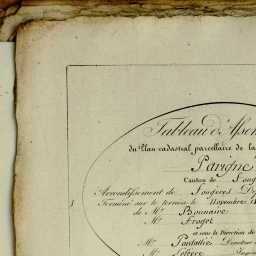 Tableau d'Assem
du Plan cadastral parcellaire de la
Parigné
Canton de Foug
Arrondissement de Fougères De
Terminé sur le terrain le Novembre
de Mr Bonnaire
Mr Fraget
et sous la Direction de
Mr Pantallier Directeur
Mr Lebrec